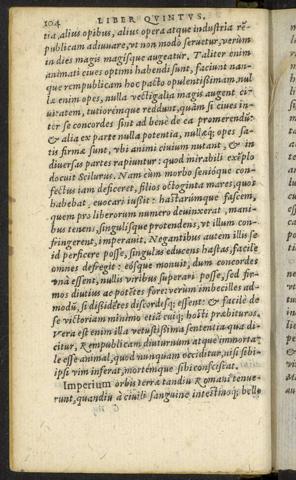 104 LIBER QVINTVS.
tia, alius opibus, alius opera atque industria rē-
publicam adiuuare, vt non modo seruetur, verùm
in dies magis magisque augeatur. Taliter enim
animati ciues optimi habendi sunt, faciunt nam-
que rempublicam hoc pacto opulentißimam, nul-
læ enim opes, nulla vectigalia magis augent ci-
uitatem, tutiorémque reddunt, quàm si ciues in-
ter se concordes sint ad benè de ea promerendū:
& alia ex parte nulla potentia, nullæq; opes sa-
tis firmæ sunt, vbi animi ciuium nutant, & in
diuersas partes rapiuntur: quod mirabili exēplo
docuit Scilurus. Nam cùm morbo senióque con-
fectus iam deficeret, filios octoginta mares, quos
habebat, euocari iußit: hastarúmque fascem,
quem pro liberorum numero deuinxerat, mani-
bus tenens, singulisque protendens, vt illum con-
fringerent, imperauit. Negantibus autem illis se
id perficere posse, singulas educens hastas, facilè
omnes defregit: eósque monuit, dum concordes
vnà essent, nullis viribus superari posse, sed fir-
mos diutius ac potētes fore: verùm imbecilles ad-
modū, si dißidētes discordésq; essent: & facilè de
se victoriam minimo etiā cuiq; hosti prabituros.
Vera est enim illa vetustißima sententia qua di-
citur, Rempublicam diuturnum atque immorta-
le esse animal, quod nunquam occiditur, nisi sibi-
ipsi vim inferat, mortémque sibi consciscat.
Imperium orbis terræ tandiu Romani tenue-
runt, quandiu à ciuili sanguine intestinoq; bello